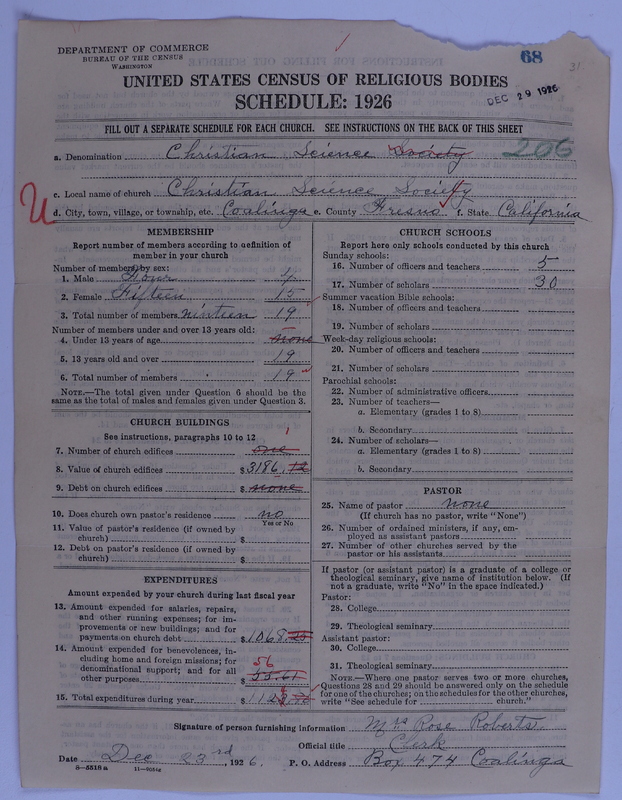 DEPARTMENT OF COMMERCE
BUREAU OF THE CENSUS
WASHINGTON
68
31
UNITED STATES CENSUS OF RELIGIOUS BODIES
SCHEDULE: 1926
DEC 29 1926
FILL OUT A SEPARATE SCHEDULE FOR EACH CHURCH. SEE INSTRUCTIONS ON THE BACK OF THIS SHEET
a. Denomination Christian Science Society 206
c. Local name of church Christian Science Society
d. City, town, village, or township, etc. Coalinga e. County Fresno f. State California
MEMBERSHIP
Report number of members according to definition of
member in your church
Number of members by sex:
1. Male Four 4
2. Female Fifteen 15
3. Total number of members nineteen 19
Number of members under and over 13 years old:
4. Under 13 years of age none
5. 13 years old and over 19
6. Total number of members 19
NOTE.—The total given under Question 6 should be the
same as the total of males and females given under Question 3.
CHURCH BUILDINGS
See instructions, paragraphs 10 to 12
7. Number of church edifices one 1
8. Value of church edifices $3186.12
9. Debt on church edifices $ none
10. Does church own pastor's residence no
Yes or No
11. Value of pastor's residence (if owned by
church) $
12. Debt on pastor's residence (if owned by
church) $
EXPENDITURES
Amount expended by your church during last fiscal year
13. Amount expended for salaries, repairs,
and other running expenses; for im-
provements or new buildings; and for
payments on church debt $1068.25
14. Amount expended for benevolences, in-
cluding home and foreign missions; for
denominational support; and for all
other purposes 56 55.61
15. Total expenditures during year $
CHURCH SCHOOLS
Report here only schools conducted by this church
Sunday schools:
16. Number of officers and teachers 5
17. Number of scholars 30
Summer vacation Bible schools:
18. Number of officers and teachers
19. Number of scholars
Week-day religious schools:
20. Number of officers and teachers
21. Number of scholars
Parochial schools:
22. Number of administrative officers
23. Number of teachers—
a. Elementary (grades 1 to 8)
b. Secondary
24. Number of scholars—
a. Elementary (grades 1 to 8)
b. Secondary
PASTOR
25. Name of pastor none
(If church has no pastor, write "None")
26. Number of ordained ministers, if any, em-
ployed as assistant pastors
27. Number of other churches served by the
pastor or his assistants
If pastor (or assistant pastor) is a graduate of a college or
theological seminary, give name of institution below. (If
not a graduate, write "No" in the space indicated.)
Pastor:
28. College
29. Theological seminary
Assistant pastor:
30. College
31. Theological seminary
NOTE.—Where one pastor serves two or more churches,
Questions 28 and 29 should be answered only on the schedule
for one of the churches; on the schedules for the other churches,
write "See schedule for church."
Signature of person furnishing information Mrs Rose Roberts
Official title Clerk
Date Dec 23rd, 1926. P. O. Address Box 474 Coalinga
8—5518 a